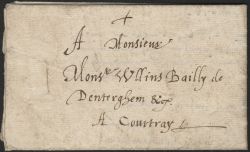 A Monsieur
Monsr Wllins Bailly de
Denterghem &c
A Courtray